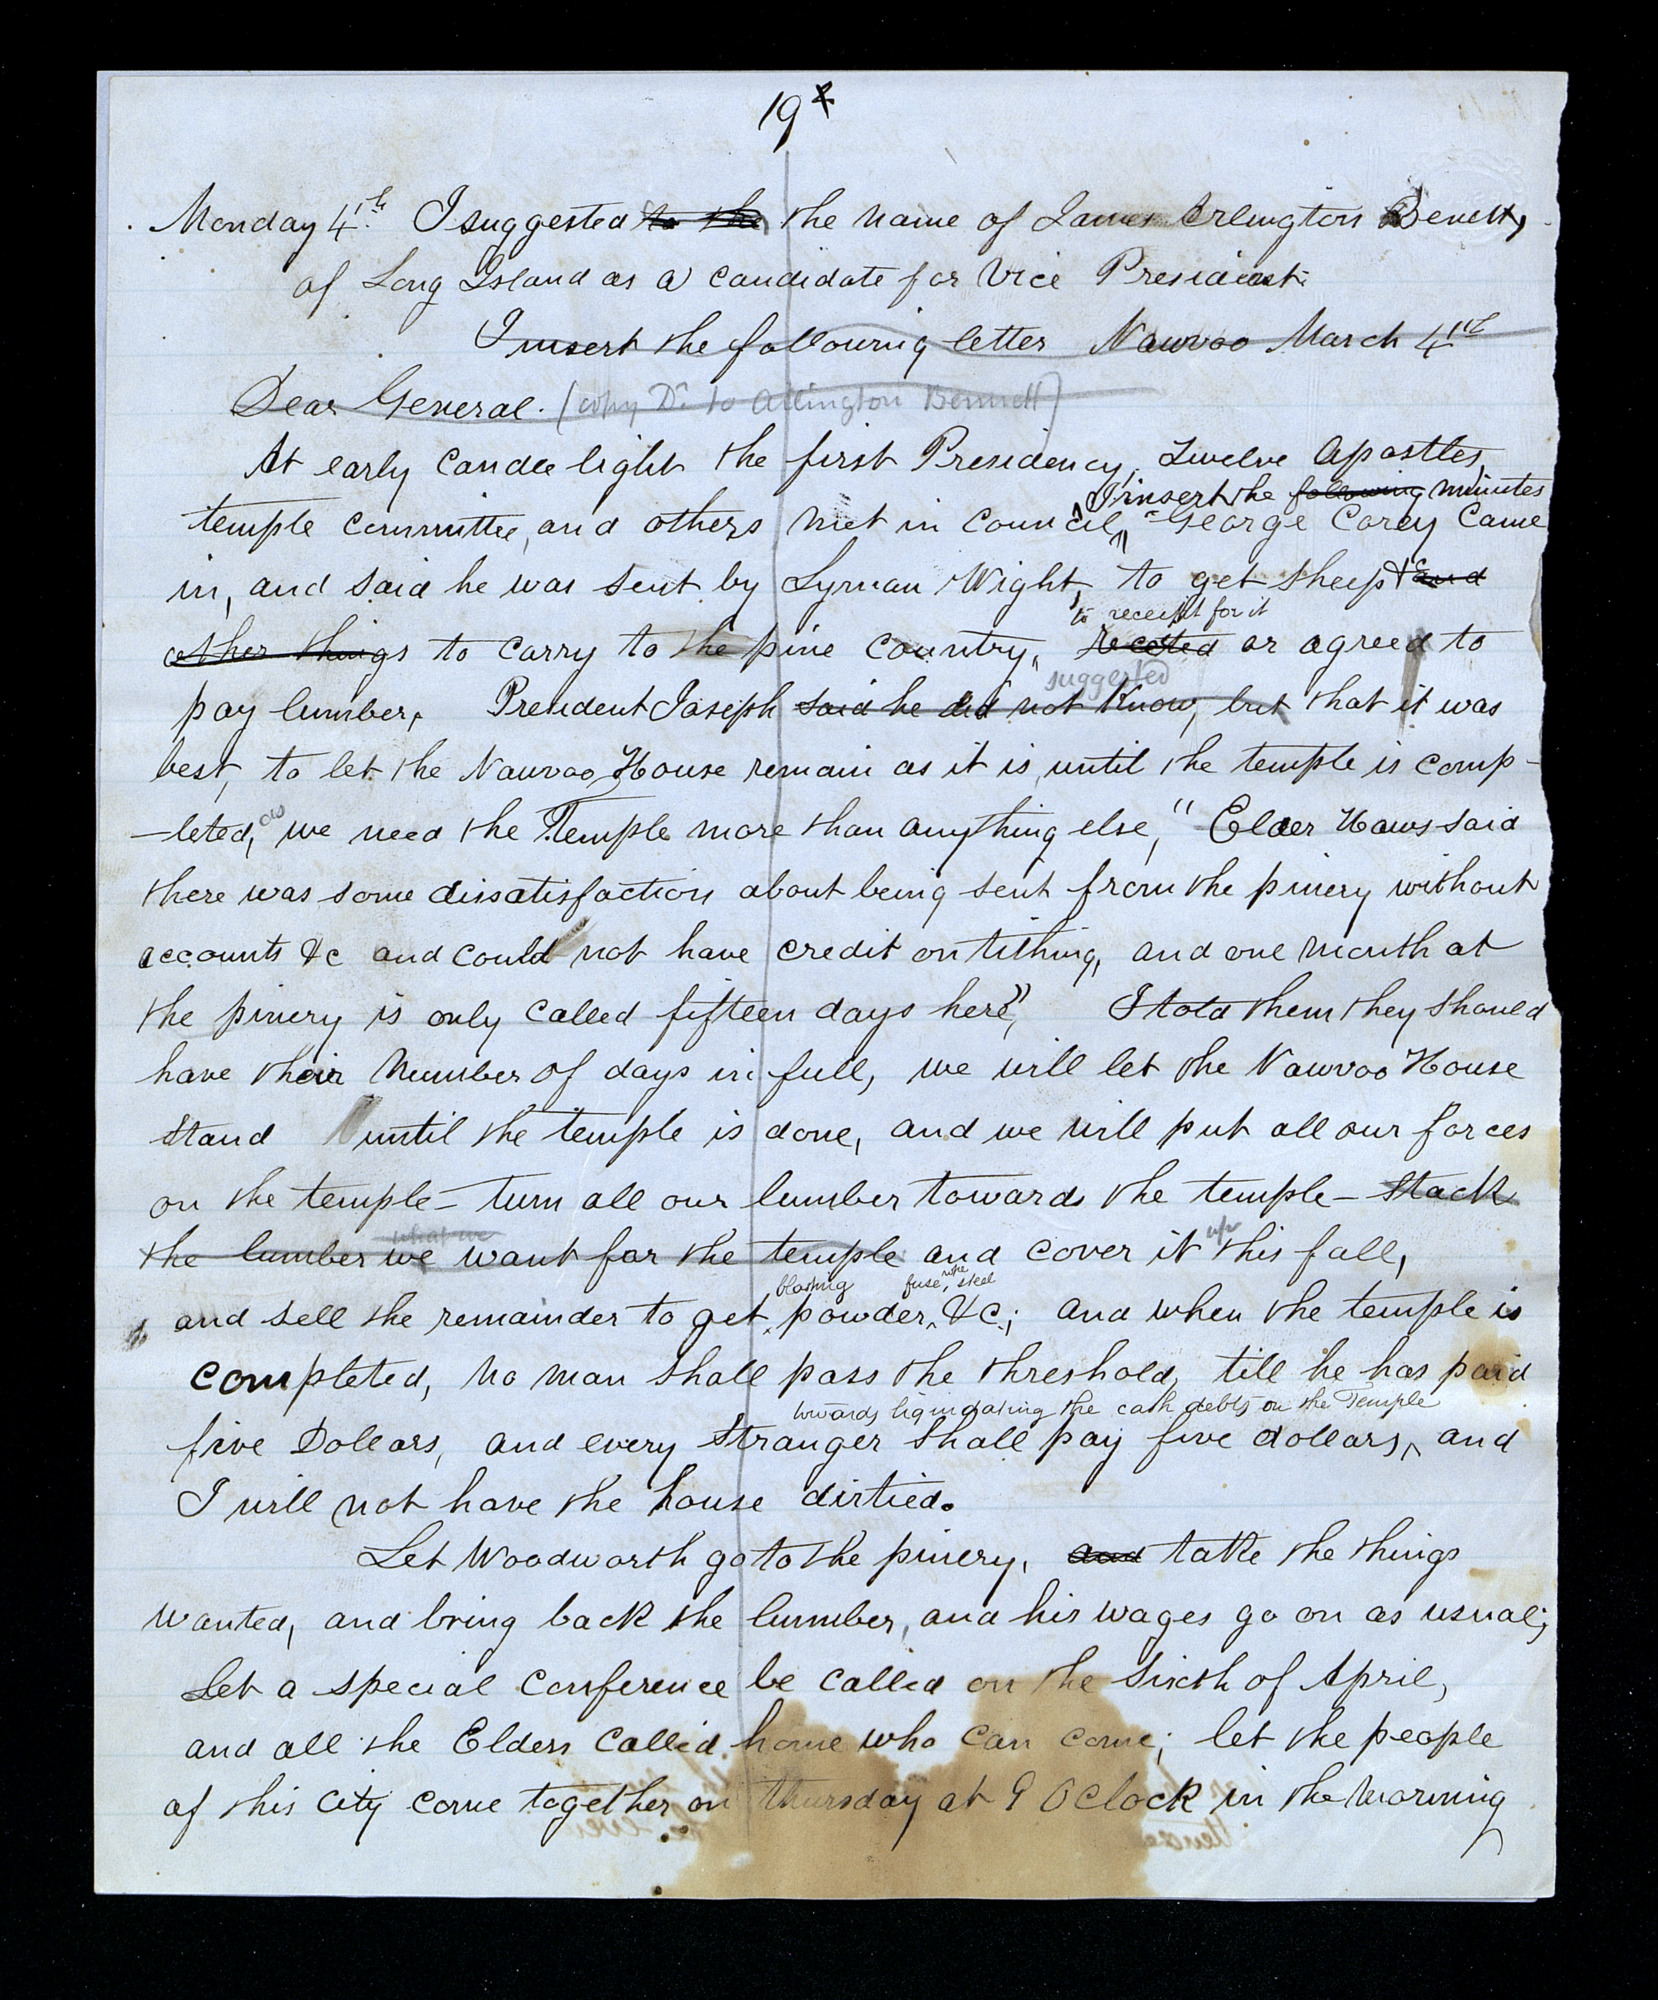 19
Monday 4th. I suggested to the the name of James Arlington Benett,
of Long Island as a candidate for Vice President.
I insert the following letter Nauvoo March 4th
Dear General. (copy Dr. to Arlington Bennett)
At early candle light the first Presidency, Twelve Apostles,
I insert the following minutes
temple committee, and others met in council, "George Corey came
in, and said he was sent by Lyman Wight, to get sheep & and
to receipt for it
other things to carry to the pine country, receted or agreed to
suggested
pay lumber. President Joseph said he did not know, but that it was
best, to let the Nauvoo House remain as it is, until the temple is comp-
-leted, as we need the Temple more than anything else," Elder Haws said
there was some dissatisfaction about being sent from the pinery without
accounts &c and could not have credit on tithing, and one month at
the pinery is only called fifteen days here," I told them they should
have their number of days in full, we will let the Nauvoo House
stand until the temple is done, and we will put all our forces
on the temple - turn all our lumber towards the temple - stack
what we
the lumber we want for the temple and cover it up this fall,
blasting fuse, rope, steel
and sell the remainder to get powder, &c.; and when the temple is
completed, no man shall pass the threshold, till he has paid
towards liquidating the cash debts on the Temple
five Dollars, and every Stranger shall pay five dollars, and
I will not have the house dirtied.
Let Woodworth go to the pinery, and take the things
wanted, and bring back the lumber, and his wages go on as usual;
Let a special conference be called on the sixth of April,
and all the Elders called home who can come; let the people
of this city come together on thursday at 9 O Clock in the morning